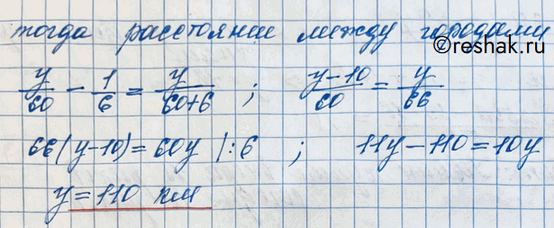 тогда расстояние между городами
©reshak.ru
y/60 - 1/6 = y/(60+6) ; (y-10)/60 = y/66
66(y-10)=60y |:6 ; 11y-110=10y
y=110 км